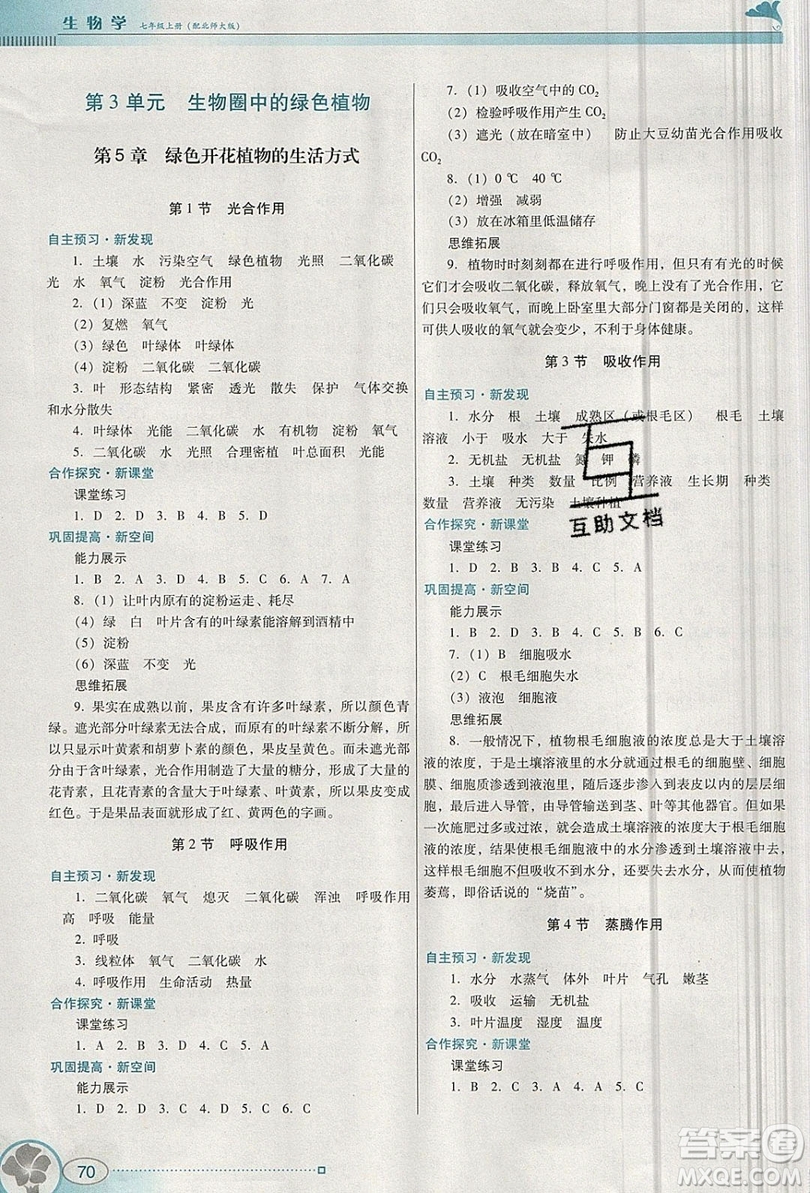 生物学 七年级上册（配北师大版）
第3单元　生物圈中的绿色植物
第5章　绿色开花植物的生活方式
第1节　光合作用
自主预习·新发现
1. 土壤　水　污染空气　绿色植物　光照　二氧化碳
光　水　氧气　淀粉　光合作用
2. （1）深蓝　不变　淀粉　光
（2）复燃　氧气
（3）绿色　叶绿体　叶绿体
（4）淀粉　二氧化碳　二氧化碳
3. 叶　形态结构　紧密　透光　散失　保护　气体交换
和水分散失
4. 叶绿体　光能　二氧化碳　水　有机物　淀粉　氧气
5. 二氧化碳　水　光照　合理密植　叶总面积　光能
合作探究·新课堂
课堂练习
1. D　2. D　3. B　4. A　5. D
巩固提高·新空间
能力展示
1. B　2. A　3. D　4. D　5. B　6. C　7. C
8. （1）让叶内原有的淀粉运走、耗尽
（4）绿　白　叶片含有的叶绿素能溶解到酒精中
（5）淀粉
（6）深蓝　不变　光
思维拓展
9. 果实在成熟以前，果皮含有许多叶绿素，所以颜色青
绿。遮光部分叶绿素无法合成，而原有的叶绿素不断分解，
只显示出叶黄素和胡萝卜素的颜色，果皮呈黄色。而未遮光部分
的叶绿素，因光合作用制造了大量的糖分，形成了大量的花
青素，且花青素的红色掩盖了其他色素的颜色，果皮变成
红色。于是果品表面就形成了红、黄两色的字画。
第2节　呼吸作用
自主预习·新发现
1. 二氧化碳　氧气　熄灭　二氧化碳　浑浊　呼吸作用
高　呼吸　能量
2. 呼吸
3. 线粒体　氧气　二氧化碳　水
4. 呼吸作用　生命活动　热量
合作探究·新课堂
课堂练习
1. A　2. B　3. C　4. D　5. C
巩固提高·新空间
能力展示
1. B　2. D　3. D　4. C　5. C　6. A
7. （1）吸收空气中的CO2
（2）检验呼吸作用产生CO2
（3）遮光（放在暗室中）　防止大豆幼苗光合作用吸收
CO2
8. （1）0 ℃　40 ℃
（2）增强　减弱
（3）放在冰箱里低温储存
思维拓展
9. 植物时时刻刻都在进行呼吸作用，但只有在有光的时候
它们才会吸收二氧化碳，释放氧气，晚上没有了光合作用，只
有呼吸作用，而晚上卧室里大部分门窗都是关闭的，这样
可供人吸收的氧气就会变少，不利于身体健康。
第3节　吸收作用
自主预习·新发现
1. 水分　根　土壤　成熟区（或根毛区）　根毛　土壤
溶液　小于　吸水　大于　失水
2. 无机盐　无机盐　氮　钾　磷
3. 土壤　种类　数量　比例　营养液　生长期　种类
数量　营养液　无污染　土壤种植
合作探究·新课堂
课堂练习
1. D　2. B　3. B　4. C　5. A
巩固提高·新空间
能力展示
1. B　2. D　3. B　4. D　5. C　6. A
7. （1）B　细胞吸水
（2）C　根毛细胞失水
（3）液泡　细胞液
思维拓展
8. 一般情况下，植物根毛细胞液的浓度总是大于土壤溶
液的浓度，于是土壤溶液里的水分就通过根毛的细胞壁、细胞
膜、细胞质渗透到液泡里，再逐步渗入到表皮以内的层层细
胞，最后进入导管，由导管输送到茎、叶等其他器官；但盐碱地
或一次施肥过多时，因为土壤溶液的浓度大于根毛细胞液的浓
度，致使根毛细胞液里的水分渗透到土壤溶液中去，
这样，根毛细胞不但吸收不到水分，反而要失水，从而使植物
萎蔫，即俗话说的“烧苗”。
第4节　蒸腾作用
自主预习·新发现
1. 水分　水蒸气　体外　叶片　气孔　嫩茎
2. 吸收　运输　无机盐
3. 叶片温度　湿度　温度
合作探究·新课堂
课堂练习
1. B　2. C　3. C　4. D　5. A
互助文档
70
答案圈
MXQE.COM